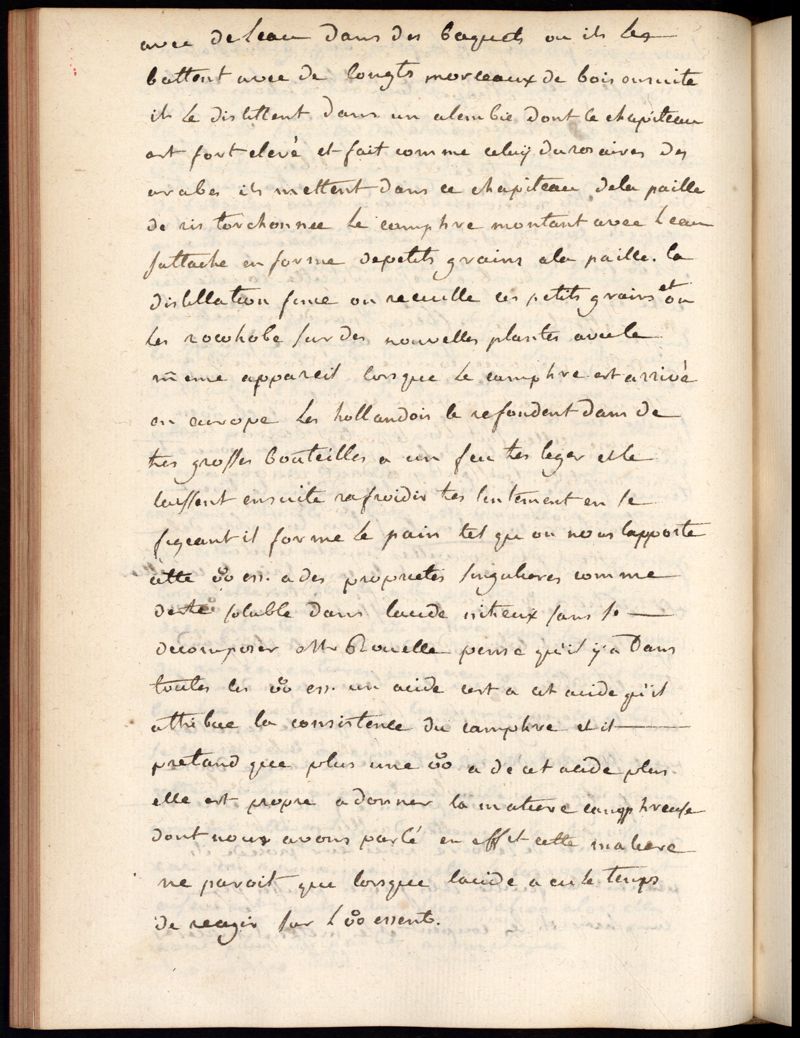 avec de leau dans des baquets ou ils les
battent avec de longts morceaux de bois ensuite
ils le distillent dans un alembic dont le chapiteau
est fort elevé et fait comme celuÿ du rosaires des
arabes ils mettent dans ce chapiteau dela paille
de ris torchonnee le camphre montant avec leau
sattache en forme depetits grains ala paille. la
distillation finie on recueille ces petits grains et on
les rocohobe sur des nouvelles plantes avec le
meme appareil lorsque le camphre est arrivé
en europe les hollandois le refondent dans de
tres grosses bouteilles a un feu tres leger et le
laissent ensuite rafroidir tres lentement en se
figeant il forme le pain tel qu on nous lapporte
cette ess. a des proprietes singulieres comme
soluble dans lacide nitreux sans se
decomposer Mr Rouelle pense qu'il ÿ a dans
toutes les ess. un acide cest a cet acide qu'il
attribue la consistence du camphre et il
pretand que plus une a de cet acide plus
elle est propre a donner la matiere camphreuse
dont nous avons parlé en effet cette matiere
ne paroit que lorsque lacide a eu le temps
de reagir sur l essent.